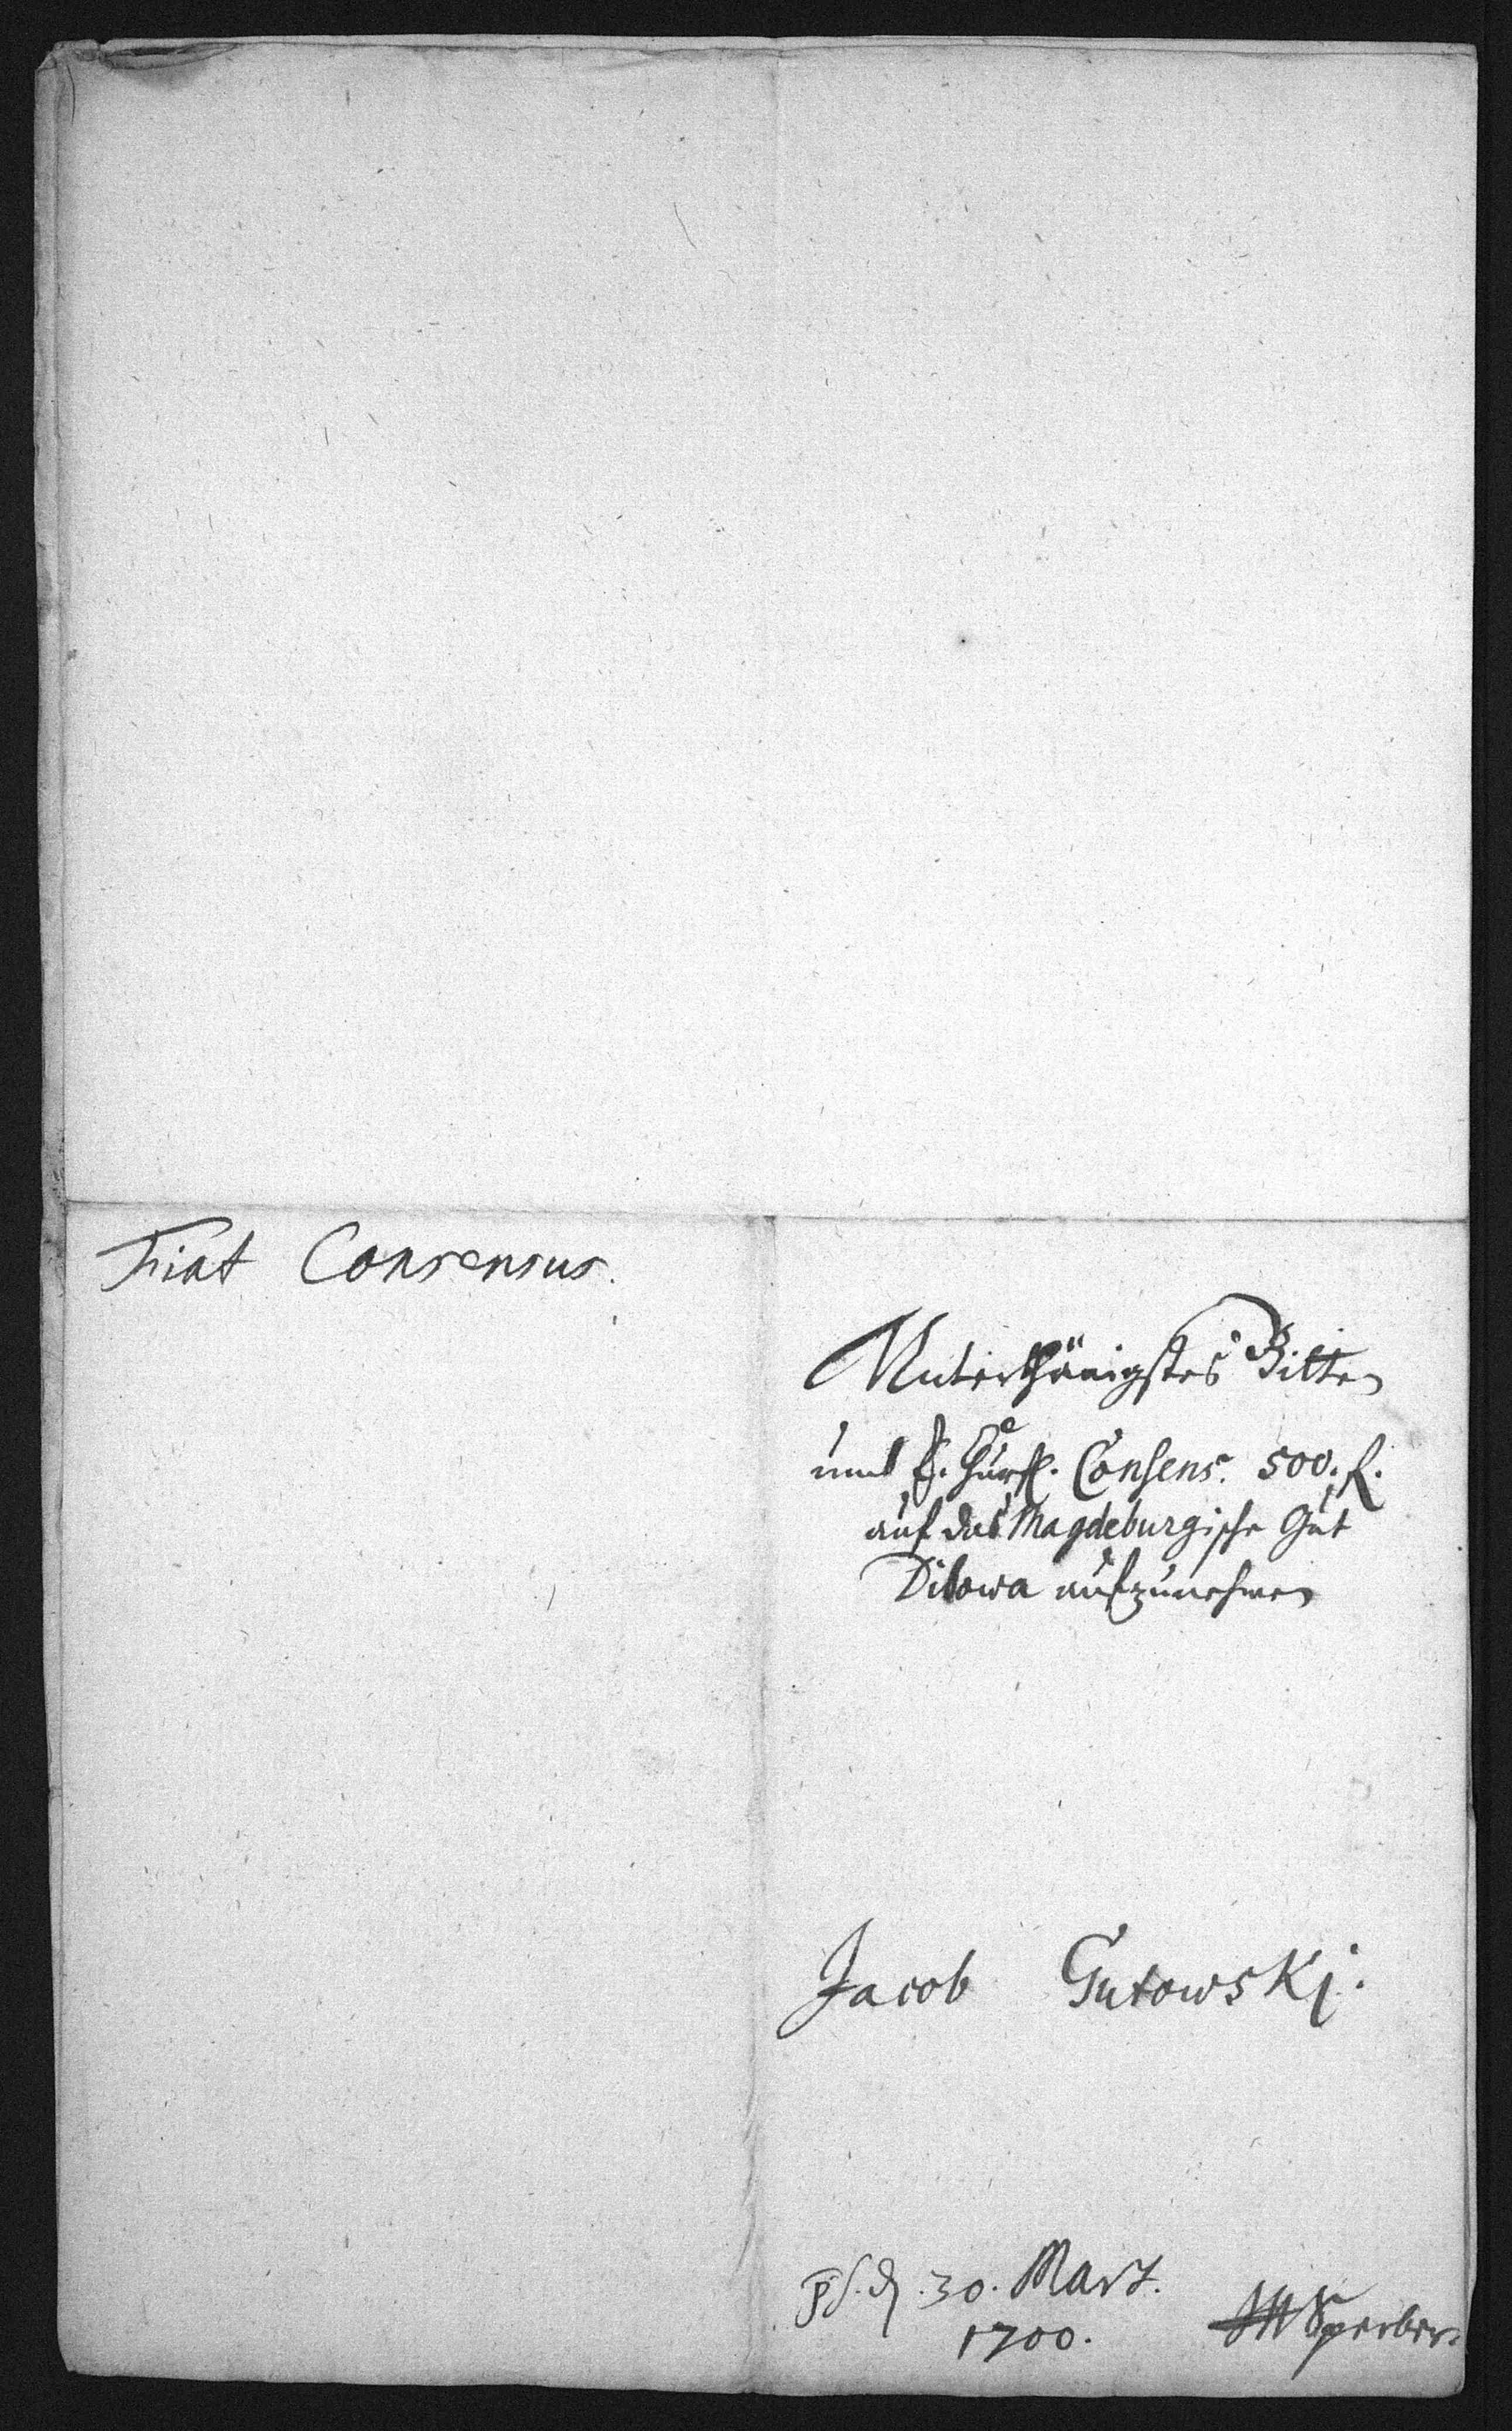 Fiat Consensus.
Unterthänigstes Bitten
umb Churfl. Consens. 500. f.
auf das Magdeburgische Gut
Dibowa aufzunehmen
Jacob Gutowski.
30. Mart.
1700.
Sperber